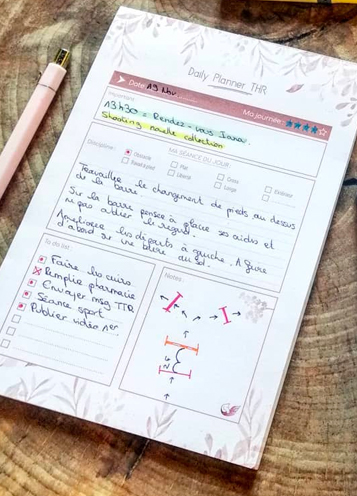 Daily Planner THR
Date 19 Nov.
Ma journée :
Important :
13h30 = Rendez-vous Iana.
Shooting nouvelle collection
Discipline :
MA SÉANCE DU JOUR :
Obstacle
Plat
Cross
Extérieur
Travail à pied
Liberté
Longe
Travailler le changement de pieds au dessus
de la barre.
Sur la barre penser à glisser ses aides et
ne pas
Améliorer les départs à gauche. A faire
d'abord sur une barre au sol.
To do list :
Faire les cuirs
Remplir pharmacie
Envoyer msg TTR
Séance sport
Publier vidéo
Notes :